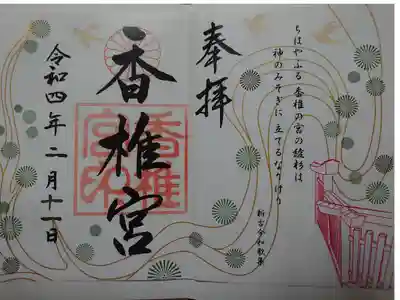 ちはやふる 香椎の宮の綾杉は
神のみそぎに 立てるなりけり
新古今和歌集
奉拝
香椎宮
香椎
宮印
令和四年 二月十一日